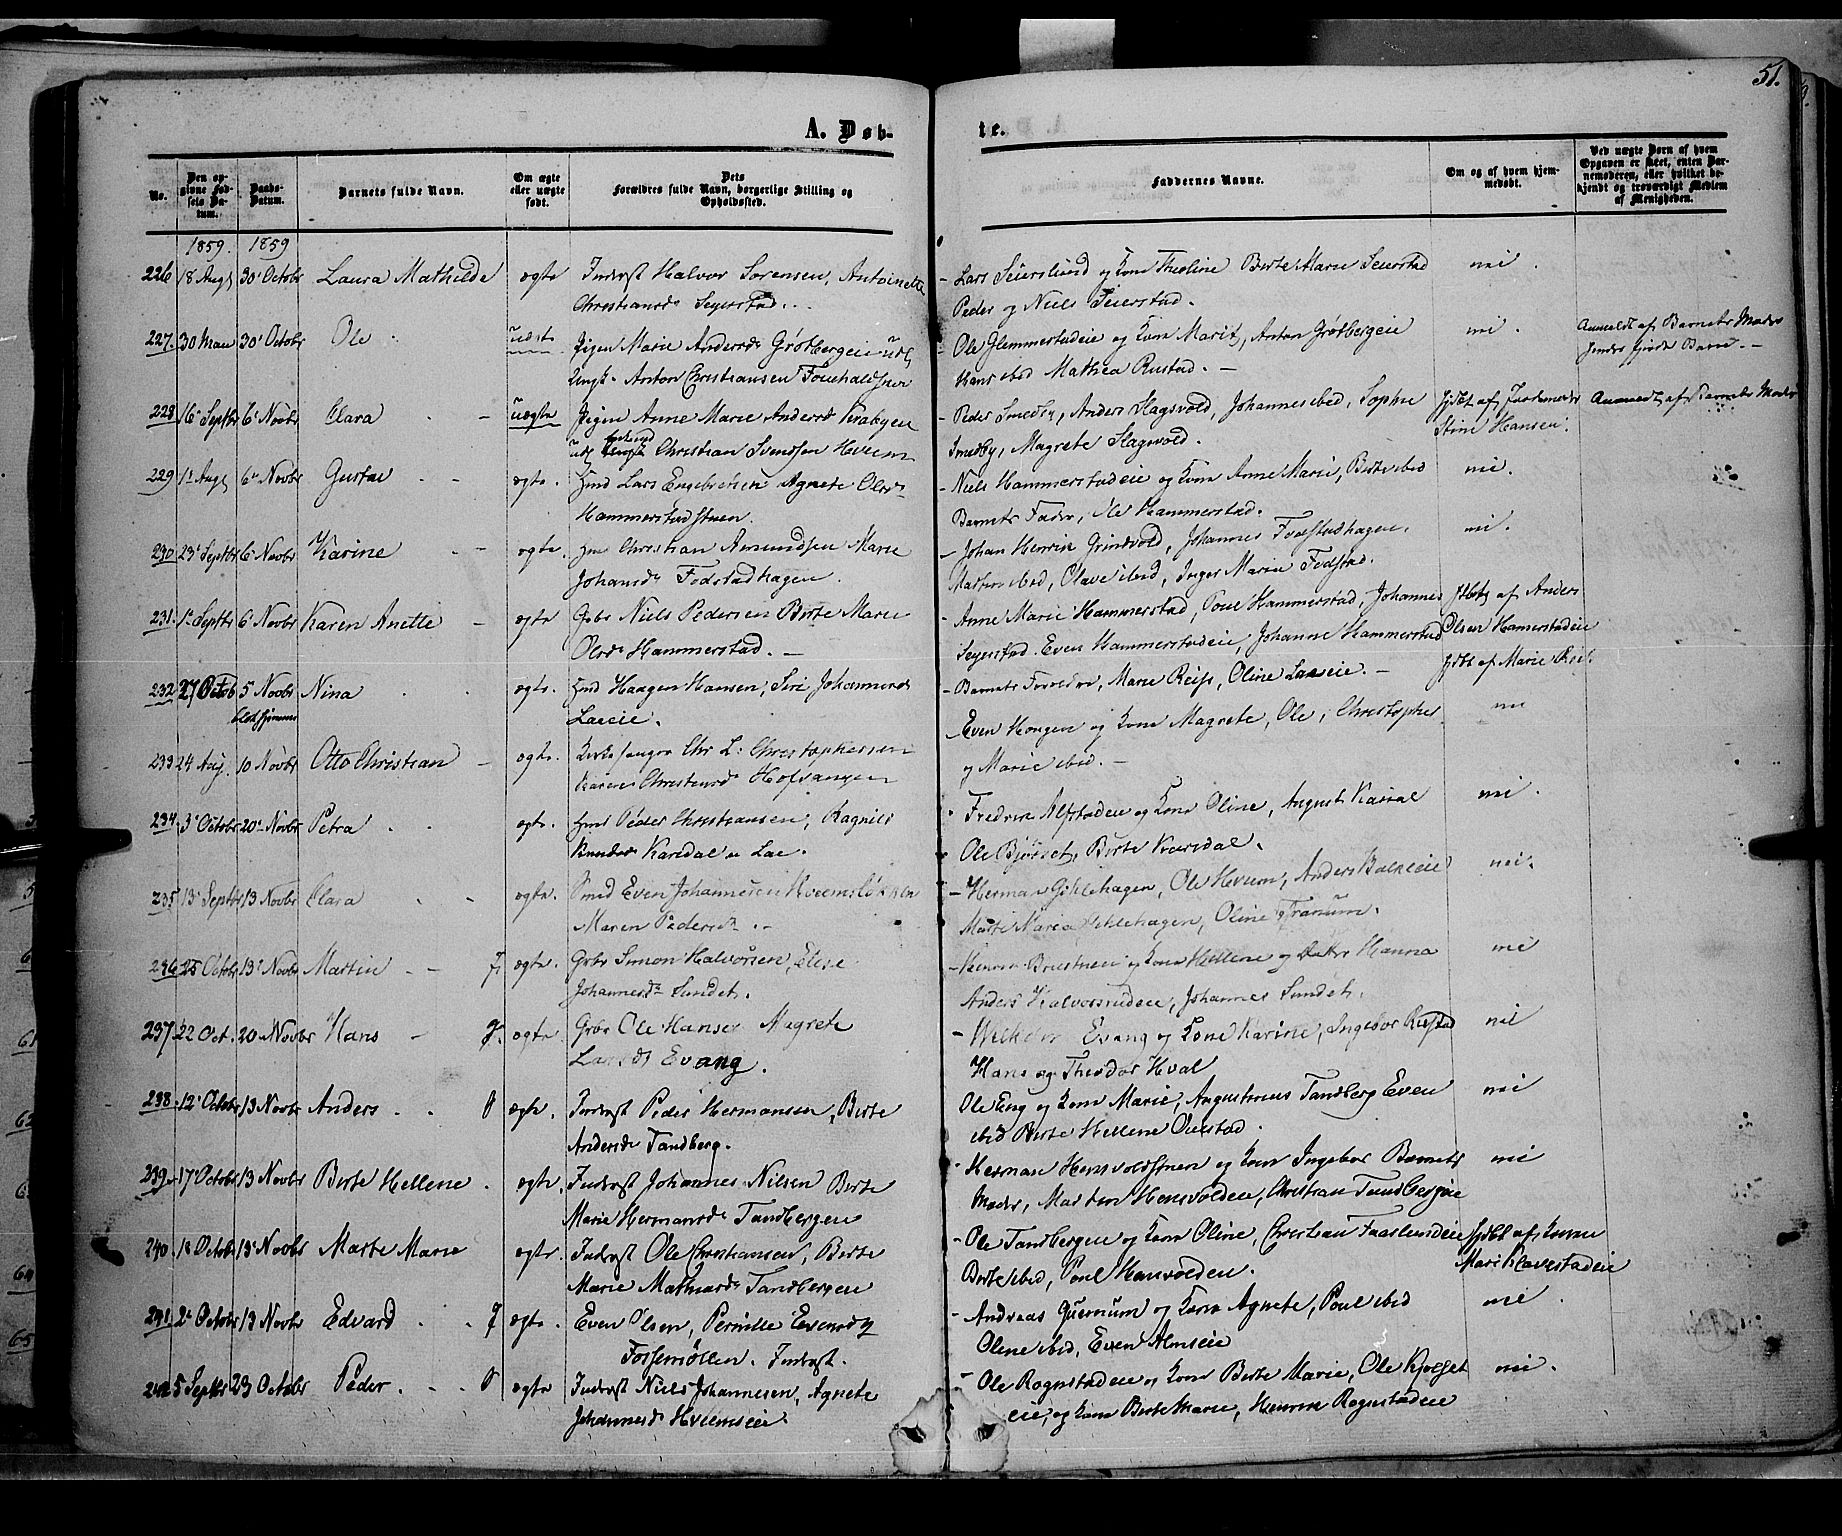 51.
A. Døb-
te.
No.
Den opgivne Fødsels Datum.
Daabs-Datum.
Barnets fulde Navn.
Om ægte eller uægte født.
Dets Forældres fulde Navn, borgerlige Stilling og Opholdssted.
Faddernes Navne.
Om og af hvem hjemmedøbt.
Ved uægte Børn af hvem Opgaven er skeet, enten Barnemoderen, eller hvilket bekjendt og troværdigt Medlem af Menigheden.
1859. 1859
226 18 Aug 30' Octobr Laura Mathilde ægte Inderst Halvor Sørensen, Antoinette
Christiansd. Seyerstad.
- Lars Seierslund og Kone Theoline Birte Marie Seierstad nei.
Peder og Niels Seierstad.
227. 30 Mai 30' Octobr Ole
Pigen Marie Andersd Grøtbergeie
Ungk. Anton Christiansen
- Ole Glemmestadeie og Kone Marit, Anton Grøtbergeie nei.
Hans ibid Mathea Rustad. -
Anmeldt af Barnets Moder
228 16' Septbr 6' Novbr Clara uægte Pigen Anne Marie Andersd
Christian Svendsen Hveem
- Peder Smedby, Anders Hagsvold, Johannes ibid, Sophie
Smedby, Magrete Slagsvold.
hjdbt af Jordemoder
Stine Hansen.
Anmeldt af Barnets Moder
229 1' Aug 6' Novbr Gustav ægte. Hmd Lars Engebretsen Agnete Olsd.
Hammerstadstuen.
- Niels Hammerstadeie og Kone Anne Marie, Birte ibid nei.
Barnets Fader, Ole Hammerstad.
230 23' Septbr 6' Novbr Karine ægte. Hmd Christian Amundsen Marie
Johansd. Fodstadhagen.
- Johan Henrik Grindvold, Johannes Fodstadhagen. nei.
Martin ibid, Olave ibid, Inger Marie Fodstad.
231. 1' Septbr 6' Novbr Karen Anette - ægte Gbr Niels Pedersen Birte Marie
Olsd. Hammerstad. -
- Anne Marie Hammerstad, Poul Hammerstad, Johannes
Seyerstad. Even Hammerstadeie, Johanne Hammerstad
hjdbt af Anders
Olsen Hamerstadeie
232 27 Octob 5 Novbr Nina ægte. Hmd Haagen Hansen, Siri Johannesd
Laeeie.
- Barnets Forældre, Marie Reis, Oline Laeeie. -
hjdbt af Marie Reis.
233 24 Aug. 10 Novbr Otto Christian - ægte. Kirkesanger Chr L. Christophersen
Karen Christiansd. Hofsvangen
Even Hongen og Kone Magrete, Ole, Christopher nei
og Marie ibid. -
234. 3' Octobr 20' Novbr Petra ægte. Hmd Peder Christiansen, Ragnild
Knudsd. Karsdal u Lae.
Fredrik Alfstadeie og Kone Oline, August Karsdal nei.
Ole Bjørset, Birte Karsdal.
235 13' Septbr 13 Novbr Clara ægte. Smed Even Johannesen Kveemsløkken
Maren Pedersd. .-
- Herman Gihlehagen, Ole Hveem, Anders Balkeeie nei.
Marte Maria Gihlehagen, Oline Tranum.
236 25 Octobr 13' Novbr Martin - - J. ægte. Gbr Simon Halvorsen, Elise
Johannesd. Sundet.
Kone Hellene og Datter Hanna nei
Anders Halvorsrudeie, Johannes Sundet.
237. 22 Oct. 20 Novbr Hans - J. ægte. Gbr Ole Hansen Magrete
Larsd. Evang.
- Evang og Kone Karine, Ingebor Rustad nei
Hans og Theodor Hval
238. 12' Octobr 13 Novbr Anders O ægte. Inderst Peder Hermansen, Birte
Andersd. Tandberg.
Ole Eng og Kone Marie, Augustinus Tandberg Even nei
ibid Birte Hellene Ovestad.
239. 17 Octobr 13 Novbr Birte Hellene. ægte. Inderst Johannes Nilsen Birte
Marie Hermansd. Tandbergeie
- Herman Honsvoldstuen og Kone Ingebor Barnets nei
Moder, Martin Honsvoldeie, Christian Tandbergeie
240. 18 Octobr 13' Novbr Marte Marie ægte. Inderst Ole Christiansen, Birte
Marie Mathiasd. Tandbergeie
- Ole Tandbergeie og Kone Oline, Christian Faarlundeie
Birte ibid, Poul Honsvoldeie.
hjdbt af Konen
Mari Klavestadeie
241. 2' Octobr 13 Novbr Edvard J ægte. Even Olsen, Pernille Evensd
Fossemøllen. Inderst.
- Andreas Guernum og Kone Agnete, Poul ibid nei.
Oline ibid, Even Almseie
242 5 Septbr 23 Octobr Peder. - - O ægte Inderst Niels Johannesen, Agnete
Johannesd Hveemseie.
- Ole Rognstadeie og Kone Birte Marie, Ole Kjølset nei.
eie, og Kone Birte Marie, Henrik Rognstadeie